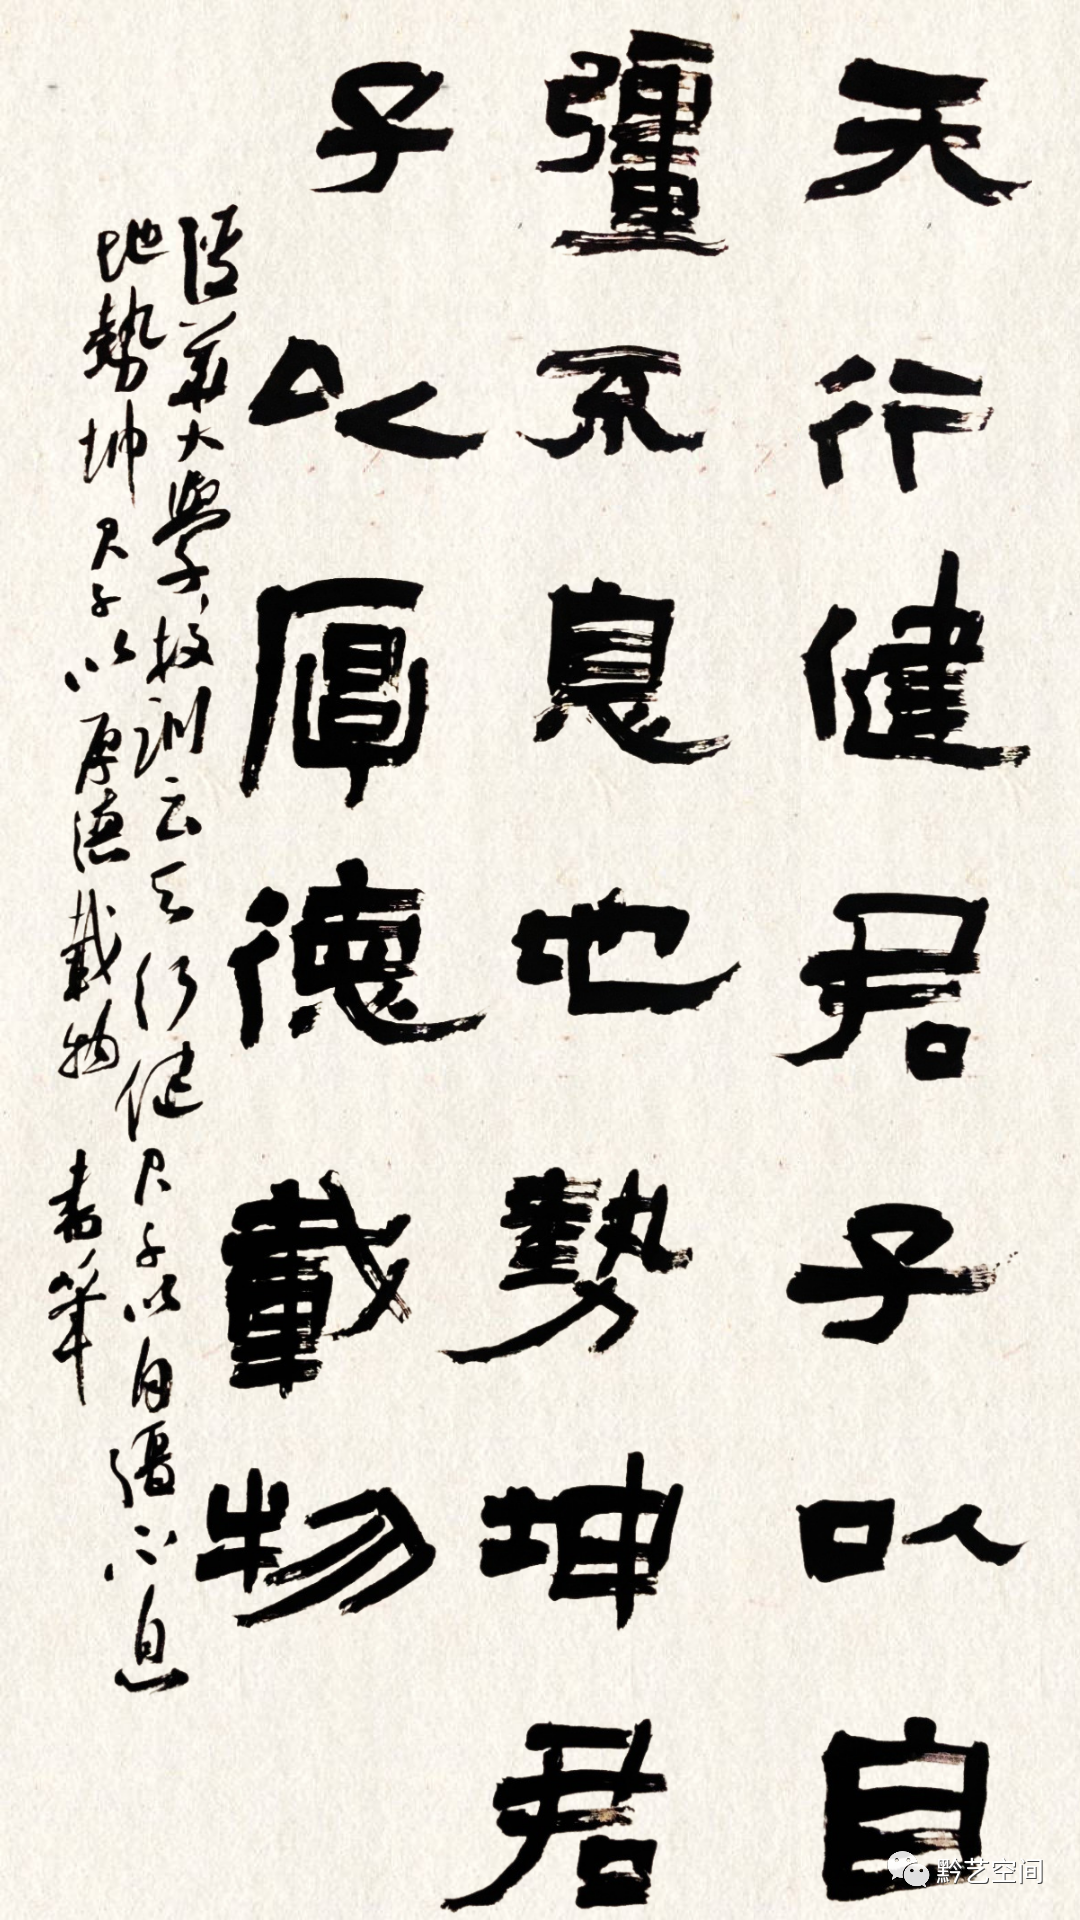 天行健君子以自
彊不息地勢坤君
子以厚德載物
清華大學校訓云天行健君子以自彊不息
地勢坤君子以厚德載物
黔艺空间